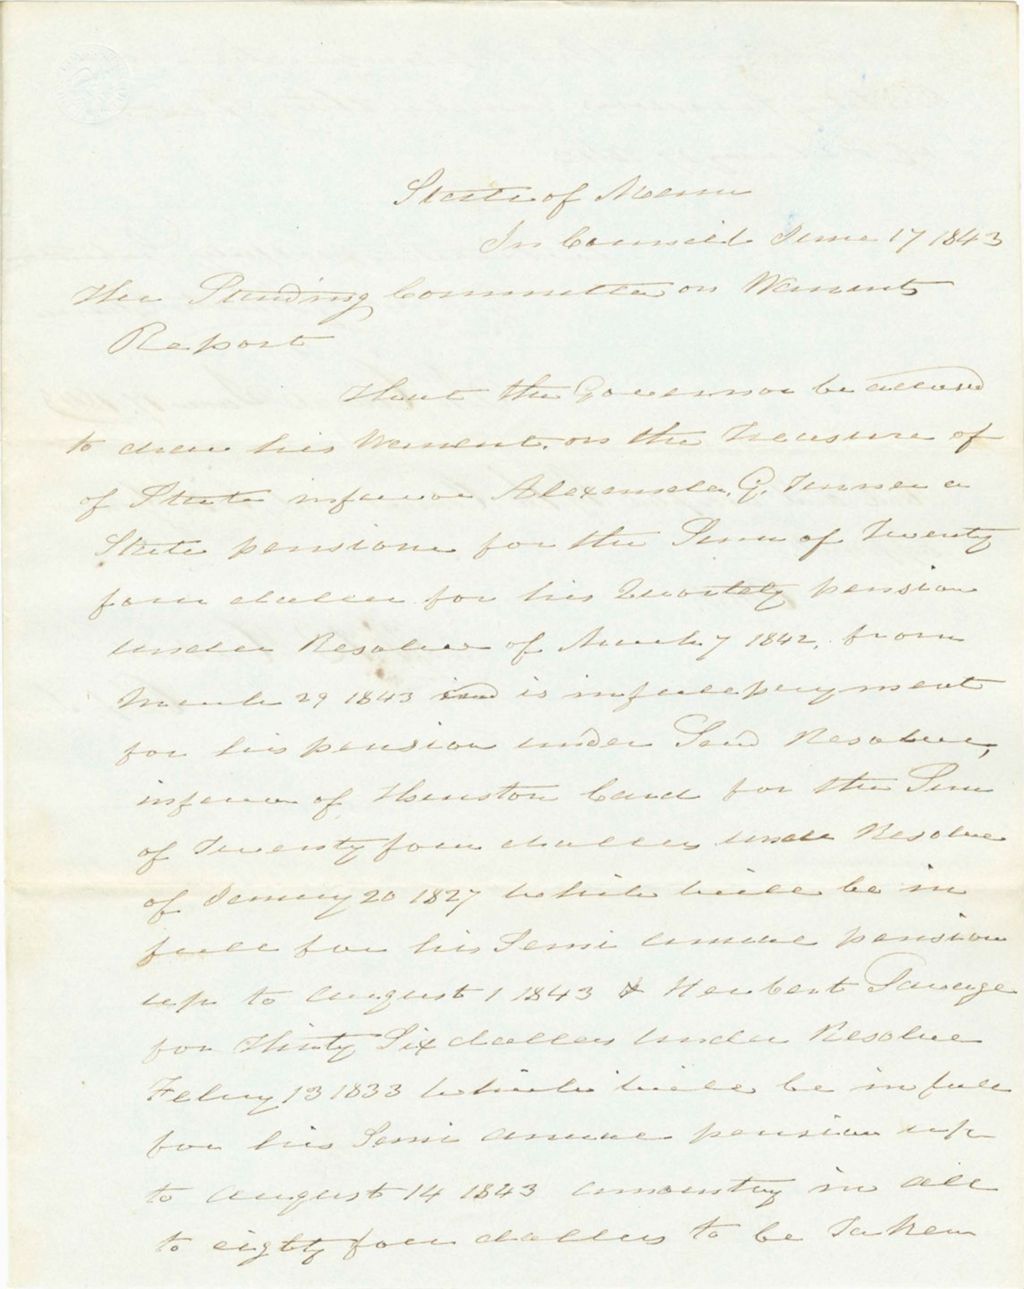 State of Maine
In Council June 17 1843
The Standing Committee on Warrants
Report
That the Governor be advised
to draw his Warrant on the Treasure of
of State in favor Alexander G. Turner a
State pensioner for the Sum of Twenty
four dollars for his Quartely pension
under Resolve of March 7 1842, from
March 29 1843 and is in full payment
for his pension under Said Resolve,
in favor of Thurston Card for the Sum
of Twenty four dollars under Resolve
of January 20 1827 which will be in
full for his Semi annual pension
up to August 1 1843 & Herbert Savage
for Thirty Six dollars under Resolve
Febury 13 1833 which will be in full
for his Semi annual pension up
to August 14 1843 amounting in all
to eighty four dollars to be Taken